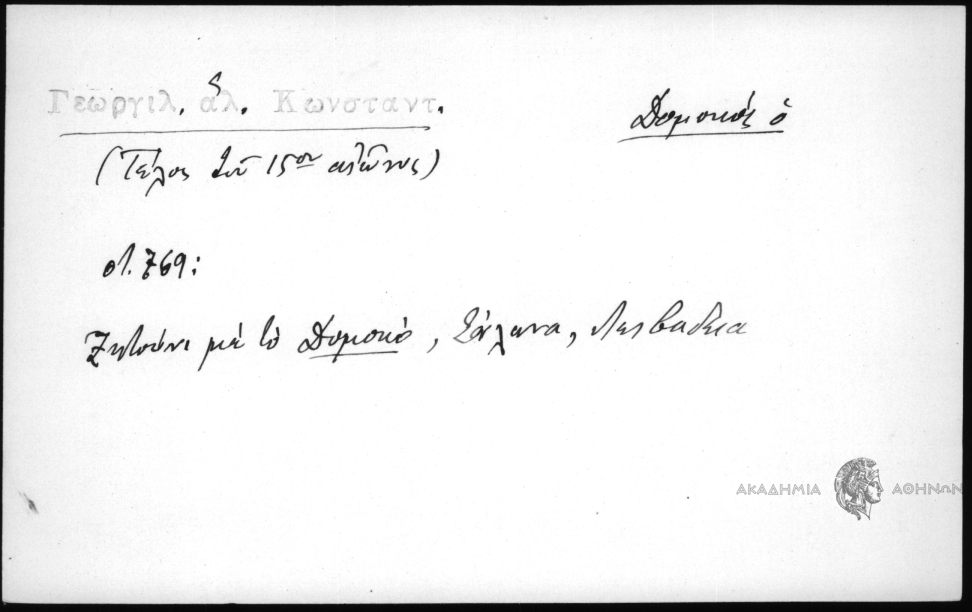 Γεωργιλ. ἁλ. Κωνσταντ.
Δομοκός ὁ
(Τέλος τοῦ 15ου αἰῶνος)
στ. 769:
Ζητούνι μὲ τὸ Δομοκό, Σάλωνα, Λειβαδεια
ΑΚΑΔΗΜΙΑ ΑΘΗΝΩΝ